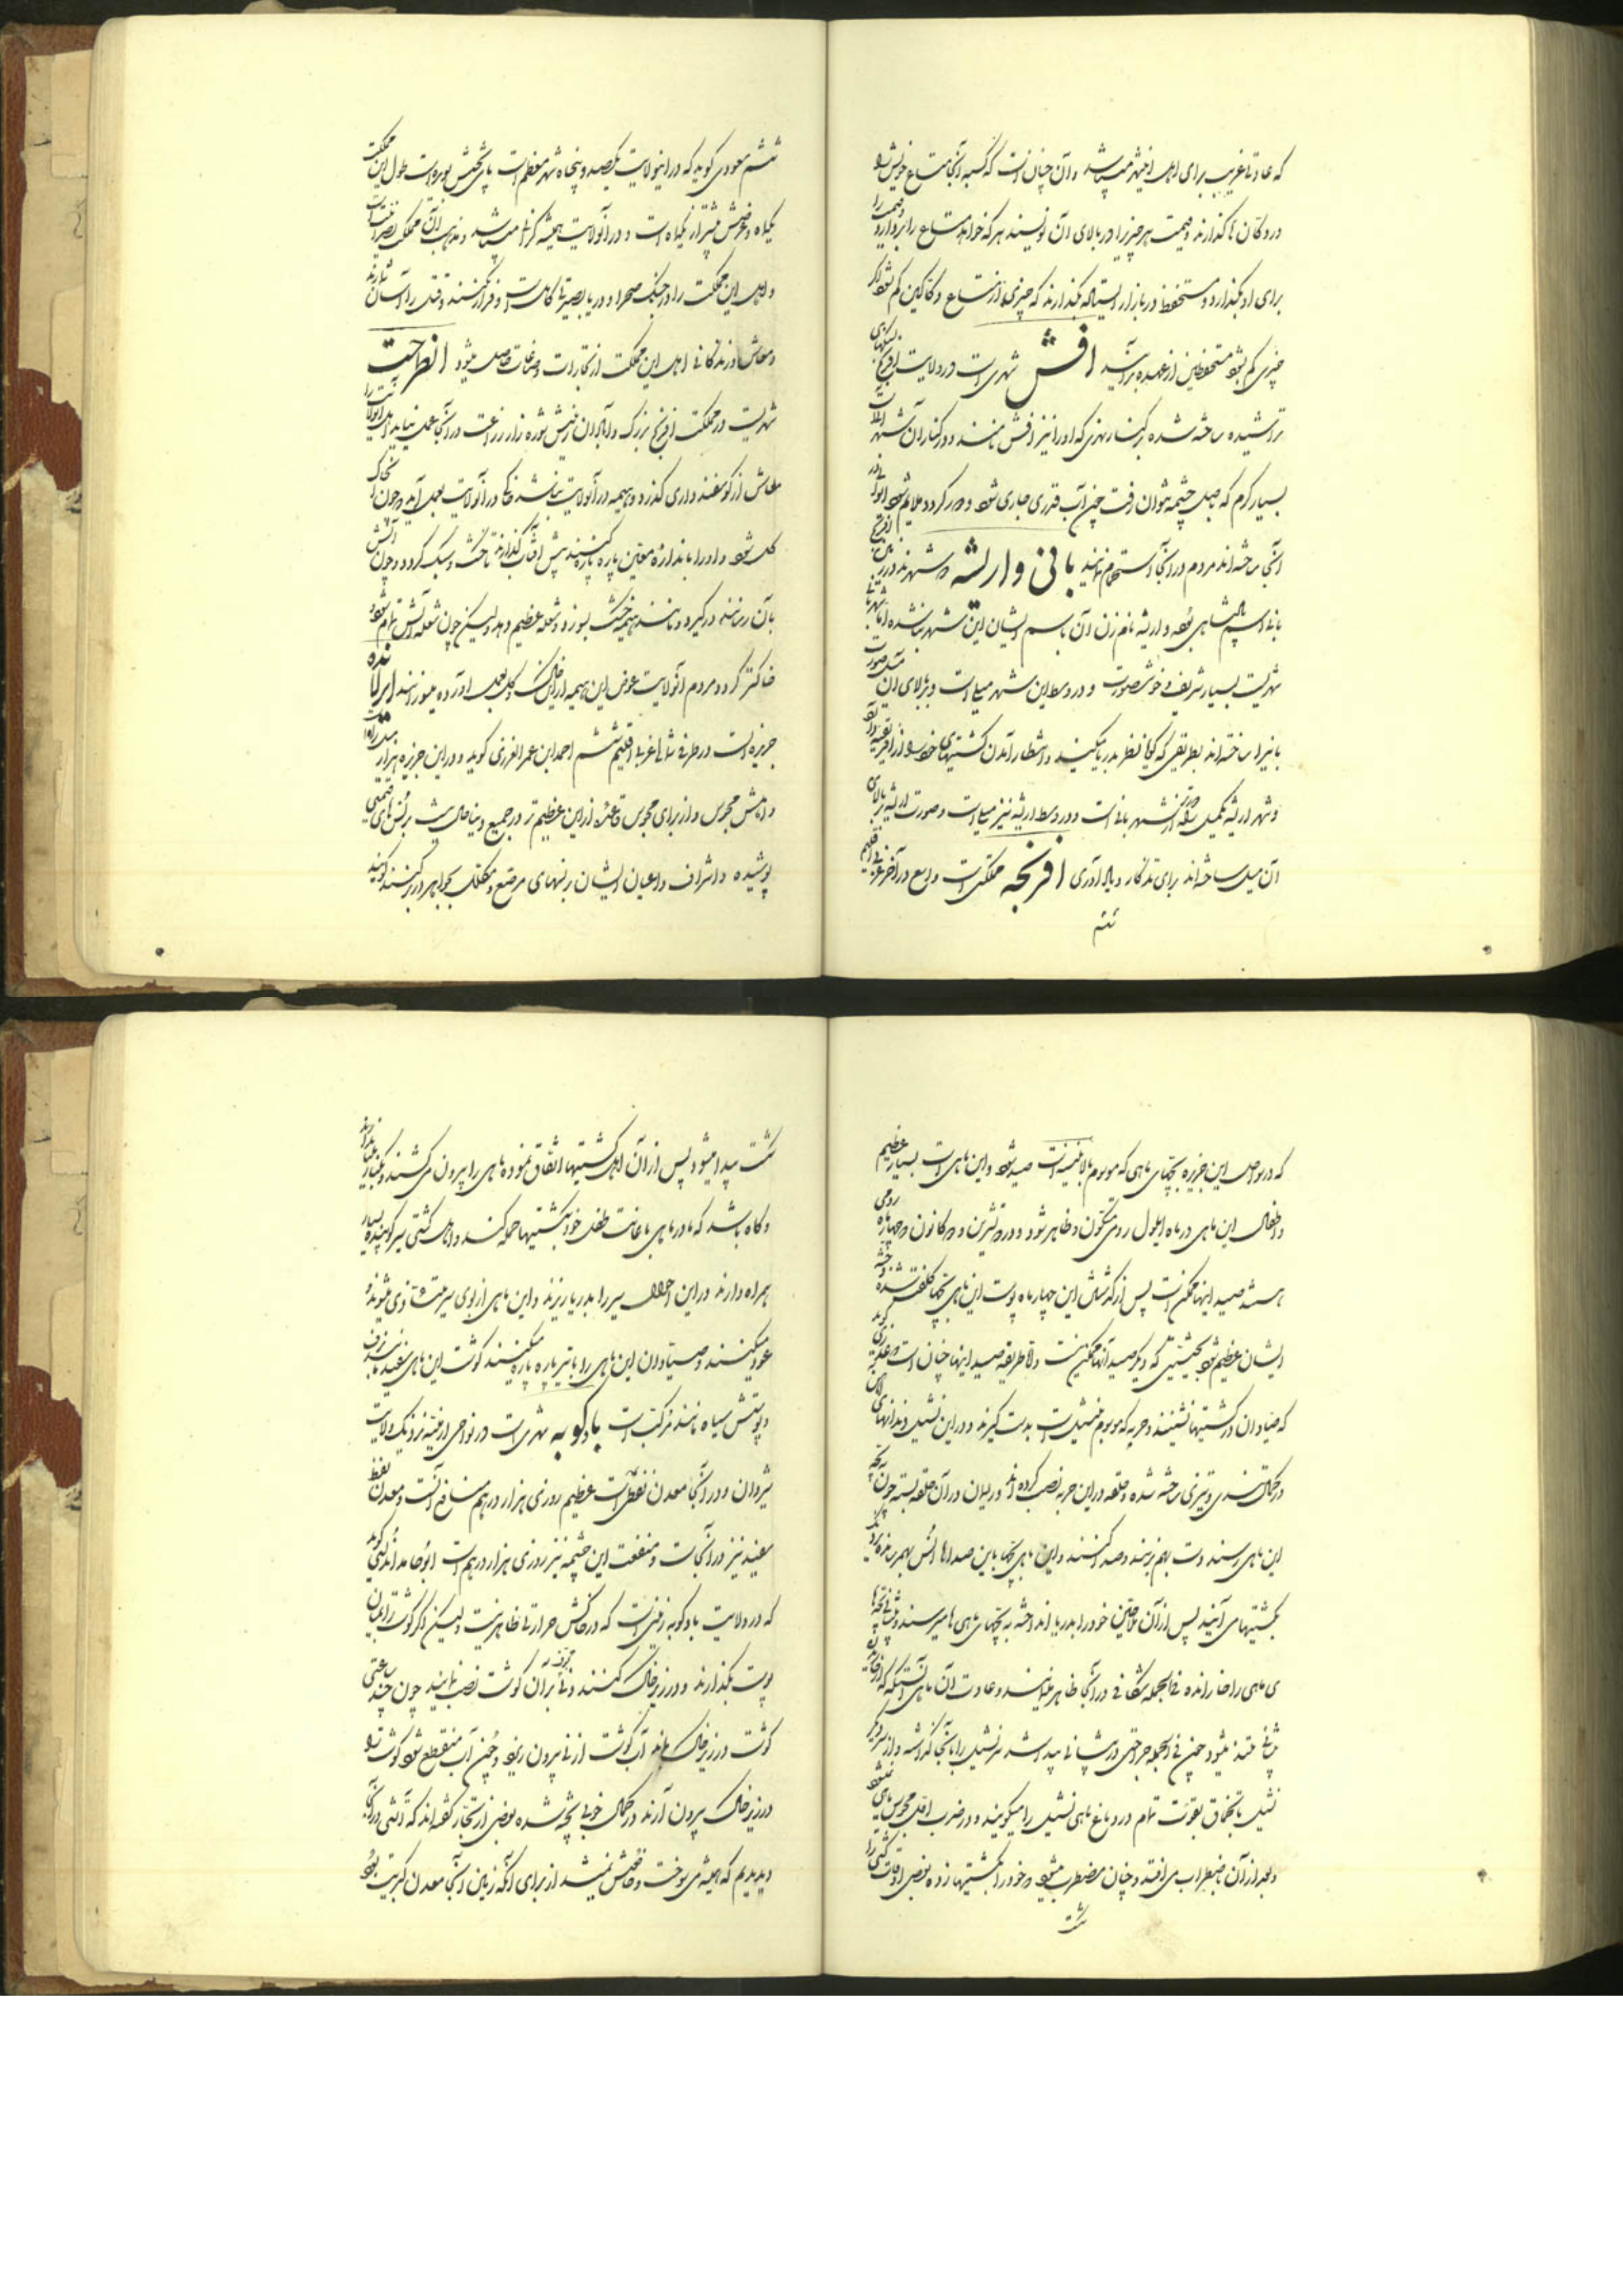 که عادت غریب برای اهل افیثه میباشد و آن چنان است که کسبه آنجا متاع خویش را
در دکان ها گذارند و قیمت هر چیز را در بالای آن نویسند هر که خواهد متاع را بردارد و قیمت را
برای او بگذارد و مستحفظ در بازار ایستاده بگذارند که چیزی از متاع دکاکین کم نشود اگر
چیزی کم بشود مستحفظین از عهده برآیند افش شهری است در ولایت افرنج بسنگهای
تراشیده ساخته شده در کنار نهری که او را نیز افش نامند و در کنار آن شهر
بسیار گرم که داخل چشمه نتوان رفت چون آب قدری جاری شود و دور گردد ملایم شود
آنجا ساخته‌اند مردم در آنجا استحمام نمایند بانی و اریشه دو شهرند در زمین افرنج
بانی اسم پادشاهی بوده و اریشه نام زن آن باسم ایشان این شهر بنا شده اما
شهریست بسیار شریف و خوش صورت و در وسط این شهر میل است و بر بالای آن میل صورت
بانی را ساخته‌اند بطریقی که گویا نظر بدریا میکند و انتظار آمدن کشتیهای خود را از افریقیه دارد
و شهر اریشه یک میل راه از شهر بانی است و در وسط اریشه نیز میل است و صورت اریشه بر بالای
آن میل ساخته‌اند برای تذکار و یادآوری افرنجه مملکتی است واسع در آخر غربی اقلیم
ششم
ششم مسعودی گوید که در این ولایت یکصد و پنجاه شهر معظم است پای تختش بویره است طول این مملکت
یکماه و عرضش بیشتر از یکماه است و در آن ولایت همیشه گرما میباشد و مذهب اهل آن مملکت نصرانیت است
و اهل این مملکت را در جنگ صحرا و دریا بصیرتها کامل است و فرار نکنند و قتل را آسان شمارند
و معاش و زندگانی اهل این مملکت از تجارات و صناعات حاصل میشود انطرحت
شهریست در مملکت افرنج بزرگ و آبادان زمینش شوره زار زراعت در آنجا بعمل نیاید اهل آن ولایت را
معاش از گوسفند داری گذرد و هیمه در آن ولایت نباشد در آن ولایت بعمل آید و چون خاک
گل شود و او را باندازه معین پاره پاره کنند پیش آفتاب گذارند تا خشک و سبک گردد و چون آتش
بآن رسانند درگیرد و مانند هیمه خشک بسوزد و شعله عظیم دهد و لیکن چون شعله آتش تمام شود
خاکستر گردد مردم آن ولایت عوض این هیمه از این خاک و گل بعمل آورده میسوزانند ایرلانده
جزیره است در طرف شمال غربی اقلیم ششم احمد ابن عمر العزری گوید و در این جزیره هزار میل راه است
و اهلش مجوس و از برای مجوس قاعده از این عظیم تر در جمیع دنیا نیست برنس های قیمتی
پوشیده و اشراف و اعیان ایشان برنسهای مرصع و مکلل بجواهر در بر کنند گویند
که در سواحل این جزیره بچهای ماهی که موسوم بالبلینه است صید شود و این ماهی است بسیار عظیم
و اطفال این ماهی در ماه ایلول رومی متکون و ظاهر شود و در دو تشرین و دو کانون و چهار ماه رومی
هستند صید اینها ممکن است پس از گذشتن این چهار ماه پوست این ماهی بچها کلفت شده و جثه
ایشان عظیم شود بحیثیتی که دیگر صید آنها ممکن نیست و الا طریقه صید اینها چنان است گوید
که صیادان در کشتیها نشینند و حربه که موسوم بنشیل است بدست گیرند و در این نشیل دندانهای
در کمال تندی و تیزی ساخته شده و حلقه در این حربه نصب کرده اند و ریسمان در آن حلقه بسته چون بچه
این ماهی رسند دست بهم زنند و صدا کنند و این ماهی بچها باین صداها انس بهم رسانده نزدیک
بکشتیهامی آیند پس از آن ملاحین خود را بدریا انداخته به بچهای ماهی ها میرسند و پیشانی بچه ها
ی ماهی را خارانده فی الجمله شکافی در آنجا ظاهر میسازند و عادت آن ماهی آنستکه که از خاریدن
پیشانی ملتذ میشود چون فی الجمله جراحتی در پیشانی پیدا شد سر نشیل را بآنجا گذاشته و از سر دیگر
نشیل با تخماق بقوت تمام در دماغ ماهی نشیل را میکوبند و در ضرب اول محسوس ماهی نمیشود
و بعد از آن باضطراب می افتد و چنان مضطرب میشود و خود را بکشتیها زده بعضی اوقات کشتی را
شکست
شکست پیدا میشود پس از آن اهل کشتیها اتفاق نموده ماهی را بیرون می کشند و بکنار
و گاه باشد که مادر ماهی باعانت طفل خود بکشتیها حمله کند و اهل کشتی سیر کوبیده بسیار
همراه دارند در این احوال سیر را بدریا ریزند و این ماهی از بوی سیر متأذی میشوند و
عود میکنند و صیادان این ماهی را با تبر پاره پاره میکنند گوشت این ماهی سفید مانند برف
و پوستش سیاه مانند مرکب است بادکوبه شهری است در نواحی ارمنیه نزدیک ولایت
شروان و در آنجا معدن نفطی است عظیم روزی هزار درهم منافع آنست و معدن نفط
سفید نیز در آنجاست و منفعت این چشمه نیز روزی هزار درهم است ابوحامد اندلسی گوید
که در ولایت بادکوبه زمینی است که در خاکش حرارتی ظاهر نیست و لیکن اگر گوشت را در میان
پوست بگذارند و در زیر خاک کنند و نی مجوف بر آن گوشت نصب نمایند چون چند ساعتی
گوشت در زیر خاک بماند آب گوشت از نی بیرون ریزد و چون آب منقطع شود گوشت را
در زیر خاک بیرون آرند در کمال خوبی پخته شده بعضی از تجار گفته اند که آتشی در آنجا
دیدیم که همیشه می سوخت و خاموش نمیشد از برای آنکه زمین آنجا معدن کبریت بود